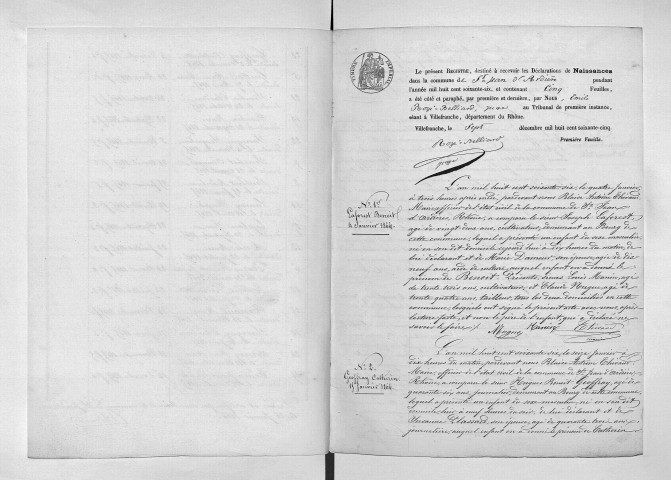 Le présent REGISTRE, destiné à recevoir les Déclarations de Naissances
dans la commune de St Jean d'Ardières pendant
l'année mil huit cent soixante-six, et contenant Cinq Feuilles,
a été coté et paraphé, par première et dernière, par Nous, Emile
juge au Tribunal de première instance,
séant à Villefranche, département du Rhône.
Villefranche, le Sept décembre mil huit cent soixante-cinq.
Première Feuille.
juge
L'an mil huit cent soixante six, le quatre Janvier
à trois heures après midi, pardevant nous Blaise Antoine Thivind
Maire officier de l'état civil de la commune de St Jean
d'Ardières, Rhône, a comparu le sieur Joseph Laforest,
âgé de vingt deux ans, cultivateur, demeurant au Bourg de
cette commune, lequel a présenté un enfant du sexe masculin
né en son dit domicile ce jourd'hui à dix heures du matin, de
lui déclarant et de Marie Damour son épouse, âgée de dix
neuf ans, aide de culture, auquel enfant on a donné le
prénom de Benoit. Présents, Louis Manin, âgé
de trente trois ans, cultivateur, et Claude âgé de
trente quatre ans tailleur, tous les deux domiciliés en cette
commune, lesquels ont signé le présent acte avec nous après
lecture faite, et non le père de l'enfant, qui a déclaré ne
savoir le faire.
N° 1er
Laforest Benoit
4 Janvier 1866
L'an mil huit cent soixante six, le seize Janvier à
dix heures du matin, pardevant nous Blaise Antoine
Maire, officier de l'état civil de la commune de St Jean d'Ardières
Rhône, a comparu le sieur Hugues Benoit Geoffray, âgé de
quarante six ans, journalier, demeurant au Bourg de cette commune
lequel a présenté un enfant de sexe masculin, né en son dit
domicile hier à neuf heures du soir, de lui déclarant et de
Suzanne Plassard, son épouse, âgée de quarante trois ans
journalière, auquel enfant on a donné le prénom de Catherin
N° 2
Geoffray Catherin
Janvier 1866